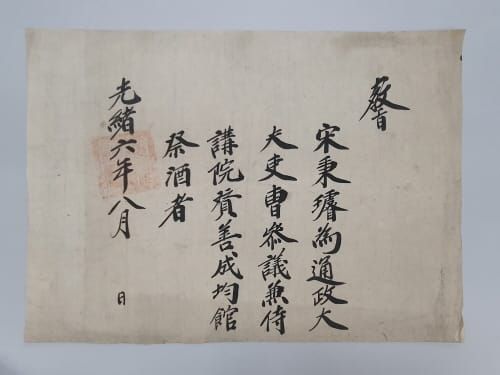 敎旨
宋秉璿為通政大
夫吏曺參議兼侍
講院贊善成均館
祭酒者
光緒六年八月 日